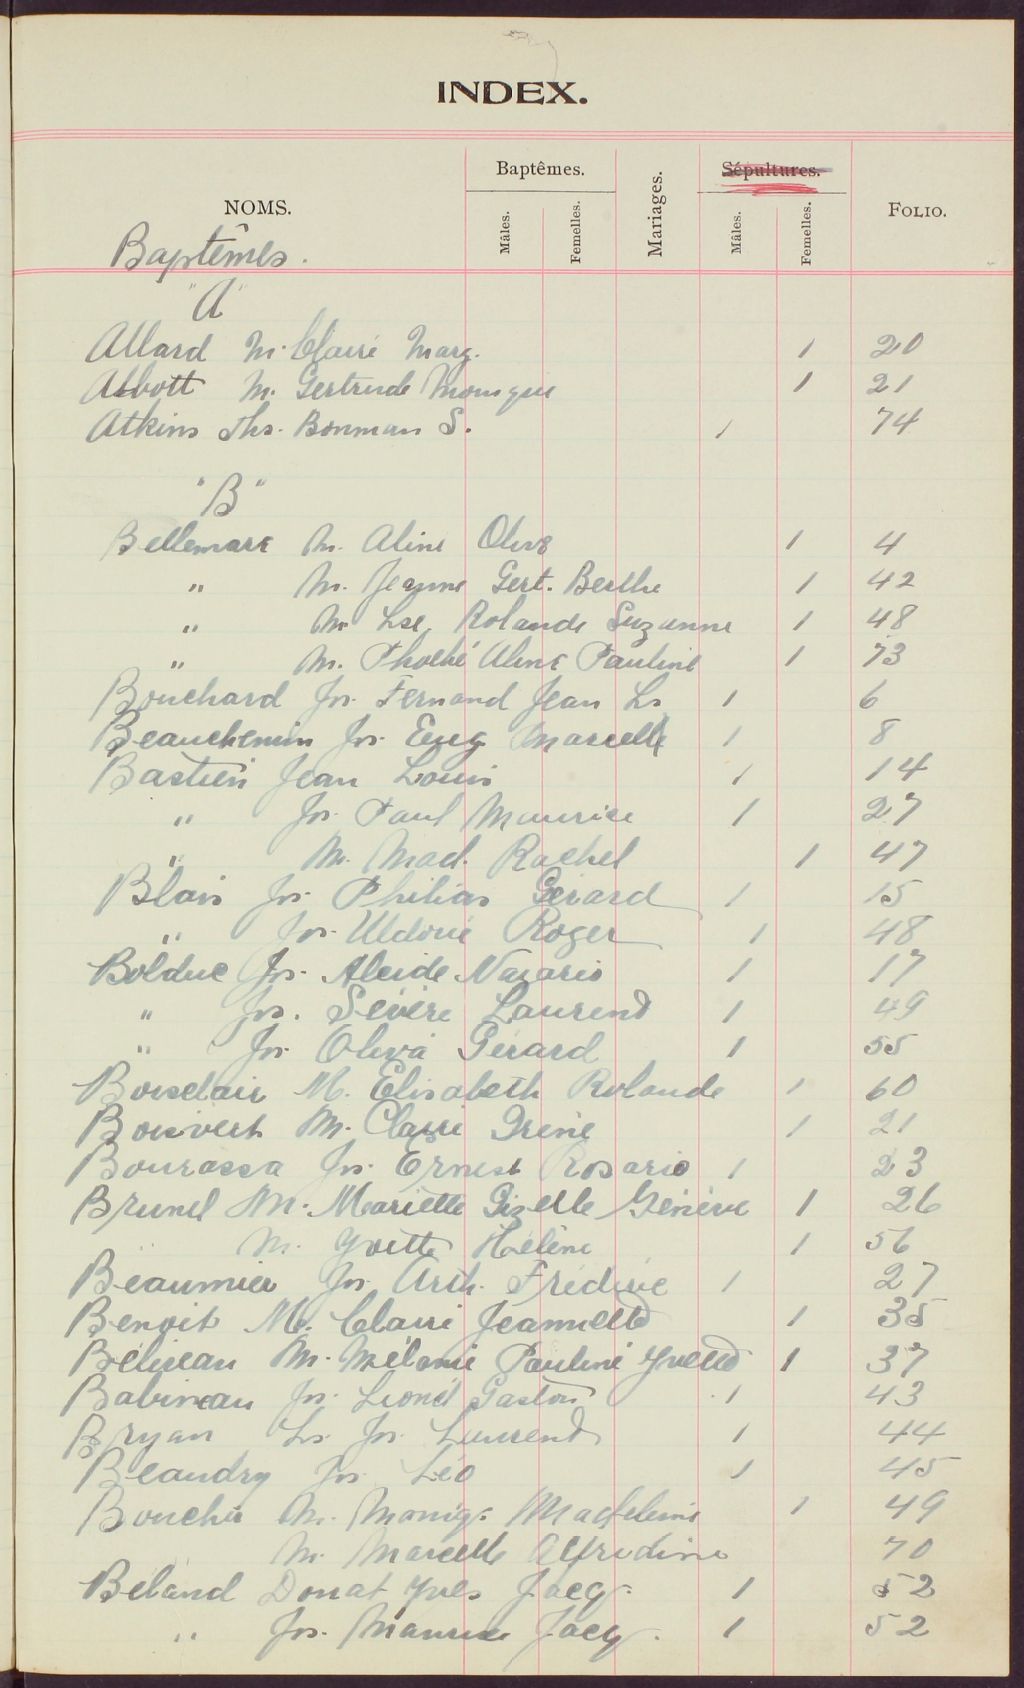 INDEX.
NOMS. Baptêmes. Mâles. Femelles. Mariages. Sépultures. Mâles. Femelles. FOLIO.
Baptêmes.
"A"
Allard M. Claire Marg. 1 20
Abbott M. Gertrude Monique 1 21
Atkins Ths. Bonman S. 1 74
"B"
Bellemare M. Aline Olive 1 4
" M. Jeanne Gert. Berthe 1 42
" M. Lse. Rolande Suzanne 1 48
" M. Phoebé Aline Pauline 1 73
Bouchard Jos. Fernand Jean Ls 1 6
Beauchemin Jos. Eug Marcelle 1 8
Bastien Jean Louis 1 14
" Jos. Paul Maurice 1 27
" M. Mad. Rachel 1 47
Blais Jos. Philias Gérard 1 15
" Jos. Roger 1 48
Bolduc Jos. Alcide Nazaris 1 17
" Jos. Sévère Laurend 1 49
" Jos. Oliva Gérard 1 55
Boisclair M. Elisabeth Rolande 1 60
Boisvert M. Claire Irène 1 21
Bourassa Jos. Ernest Rosario 1 23
Brunel M. Mariette Gizelle Génève 1 26
M. Yvette Hélène 1 56
Beaumier Jos. Arth. Frédéric 1 27
Benoit M. Claire Jeannette 1 35
Béliveau M. Mélanie Pauline Yvette 1 37
Babineau Jos. Lionel Gaston 1 43
Bryan Ls. Jos. Laurend 1 44
Beaudry Jos. Léo 1 45
Boucher M. Moniq. Madeleine 1 49
M. Marcelle Alfrédine 70
Béland Donat Yves Jacq. 1 52
" Jos. Maurice Jacq. 1 52